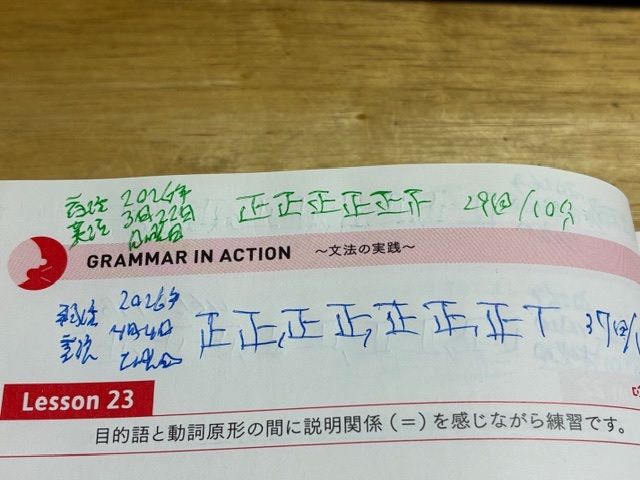 2026年
3月22日
日曜日
正正正正正正 29回/10分
GRAMMAR IN ACTION ～文法の実践～
2026年
4月4日
土曜日
正正正正正正正丅 37回/
Lesson 23
目的語と動詞原形の間に説明関係（＝）を感じながら練習です。